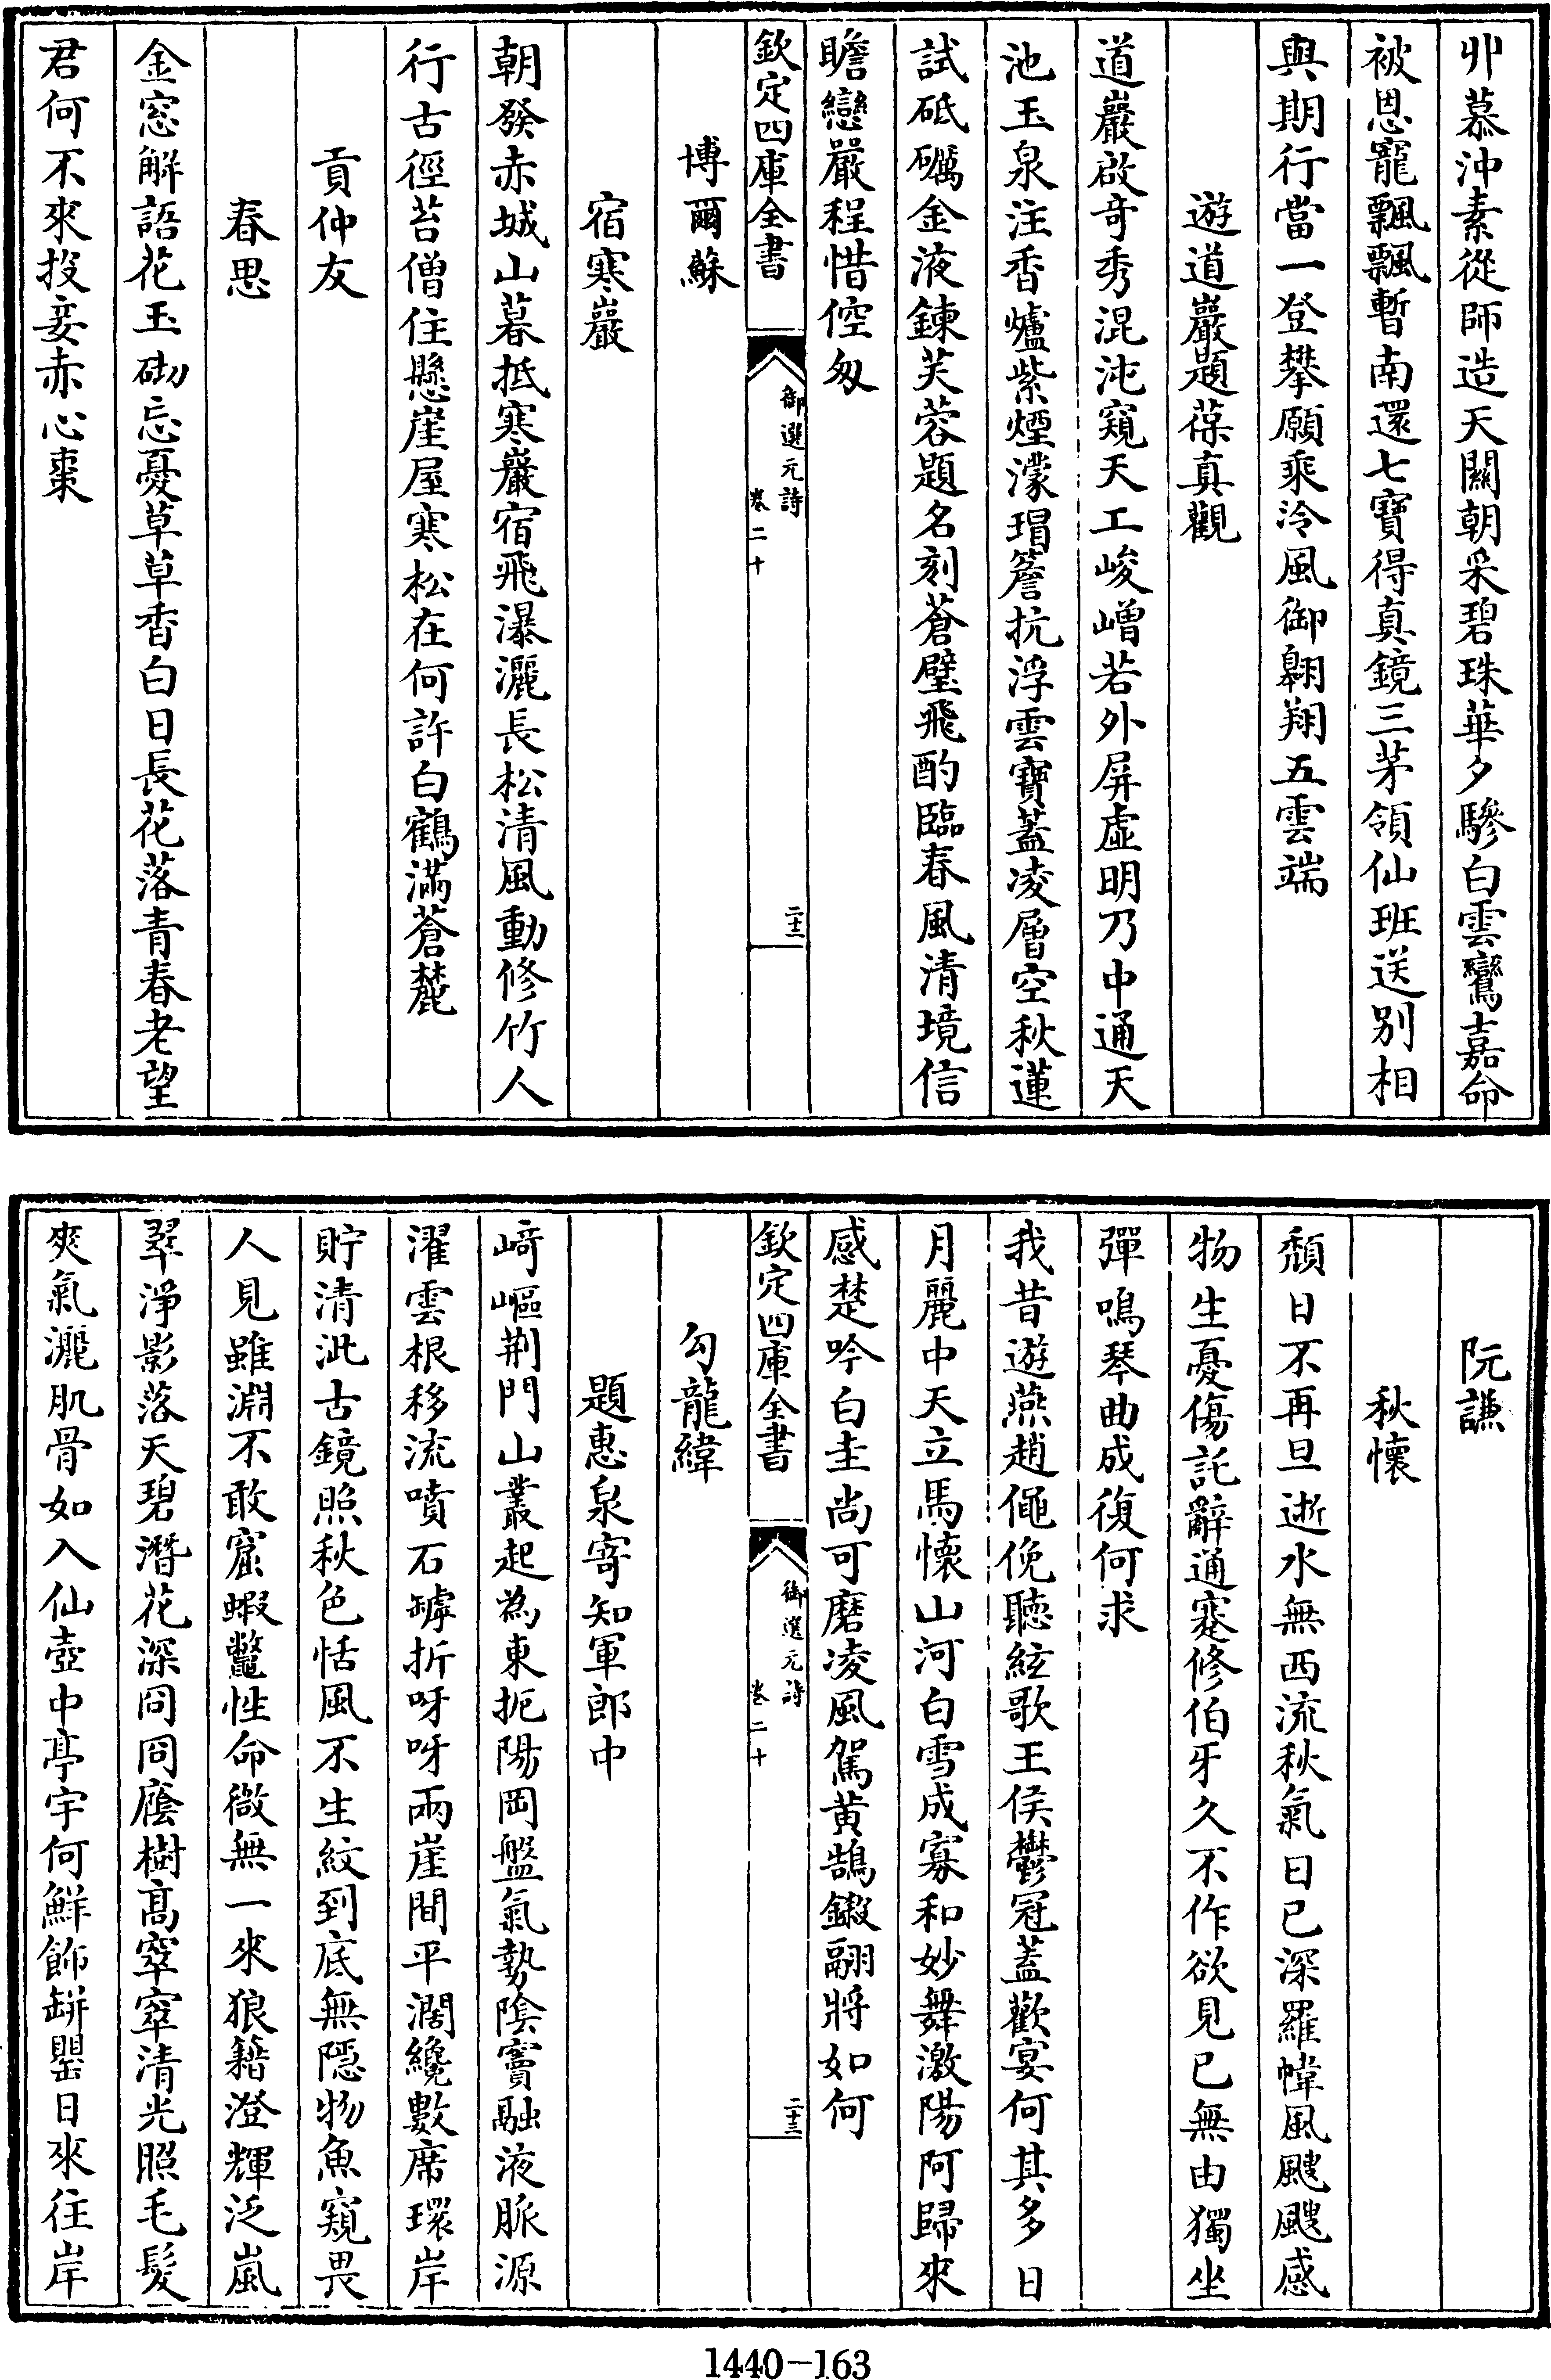 丱慕沖素從師造天關朝采碧珠華夕驂白雲鸞嘉命
被恩寵飄飄暫南還七寶得真鏡三茅領仙班送别相
與期行當一登攀願乘泠風御翱翔五雲端
遊道巖題葆真觀
道巖啟奇秀混沌窺天工峻嶒若外屏虚明乃中通天
池玉泉注香爐紫煙濛瑁簷抗浮雲寶蓋凌層空秋蓮
試砥礪金液鍊芙蓉題名刻蒼壁飛酌臨春風清境信
瞻戀嚴程惜倥匆
欽定四庫全書
御選元詩
卷二十
二十二
博爾蘇
宿寒巖
朝發赤城山暮抵寒巖宿飛瀑灑長松清風動修竹人
行古徑苔僧住懸崖屋寒松在何許白鶴滿蒼麓
貢仲友
春思
金窓解語花玉砌忘憂草草香白日長花落青春老望
君何不來投妾赤心棗
阮謙
秋懷
頽日不再旦逝水無西流秋氣日已深羅幃風颼颼感
物生憂傷託辭通蹇修伯牙久不作欲見已無由獨坐
彈鳴琴曲成復何求
我昔遊燕趙僶俛聽絃歌王侯鬱冠蓋歡宴何其多日
月麗中天立馬懷山河白雪成寡和妙舞激陽阿歸來
感楚吟白圭尚可磨凌風駕黄鵠鎩翮將如何
欽定四庫全書
御選元詩
卷二十
二十三
勾龍緯
題惠泉寄知軍郎中
﨑嶇荆門山叢起為東扼陽岡盤氣勢陰竇融液脈源
濯雲根移流噴石罅折呀呀兩崖間平濶纔數席環岸
貯清泚古鏡照秋色恬風不生紋到底無隱物魚窺畏
人見雖淵不敢窟蝦鼈性命微無一來狼籍澄輝泛嵐
翠淨影落天碧潛花深冏冏廕樹髙窣窣清光照毛髮
爽氣灑肌骨如入仙壺中亭宇何鮮飾缾罌日來往岸
1440-163